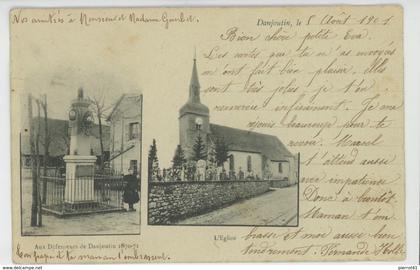 Nos amitiés à Monsieur et Madame
Danjoutin, le 8 Août 1901
Bien chère petite Eva.
Les cartes que tu m'as envoyées
m'ont fait bien plaisir. Elles
sont très jolies, je t'en
remercie infiniment. Je me
réjouis beaucoup pour toi.
t'attend aussi
avec impatience
Donc à bientôt
Maman t'em
brasse et moi aussi bien
tendrement. Fernande
Aux Défenseurs de Danjoutin 1870-71
L'Eglise
Ton papa et ta maman t'embrassent.